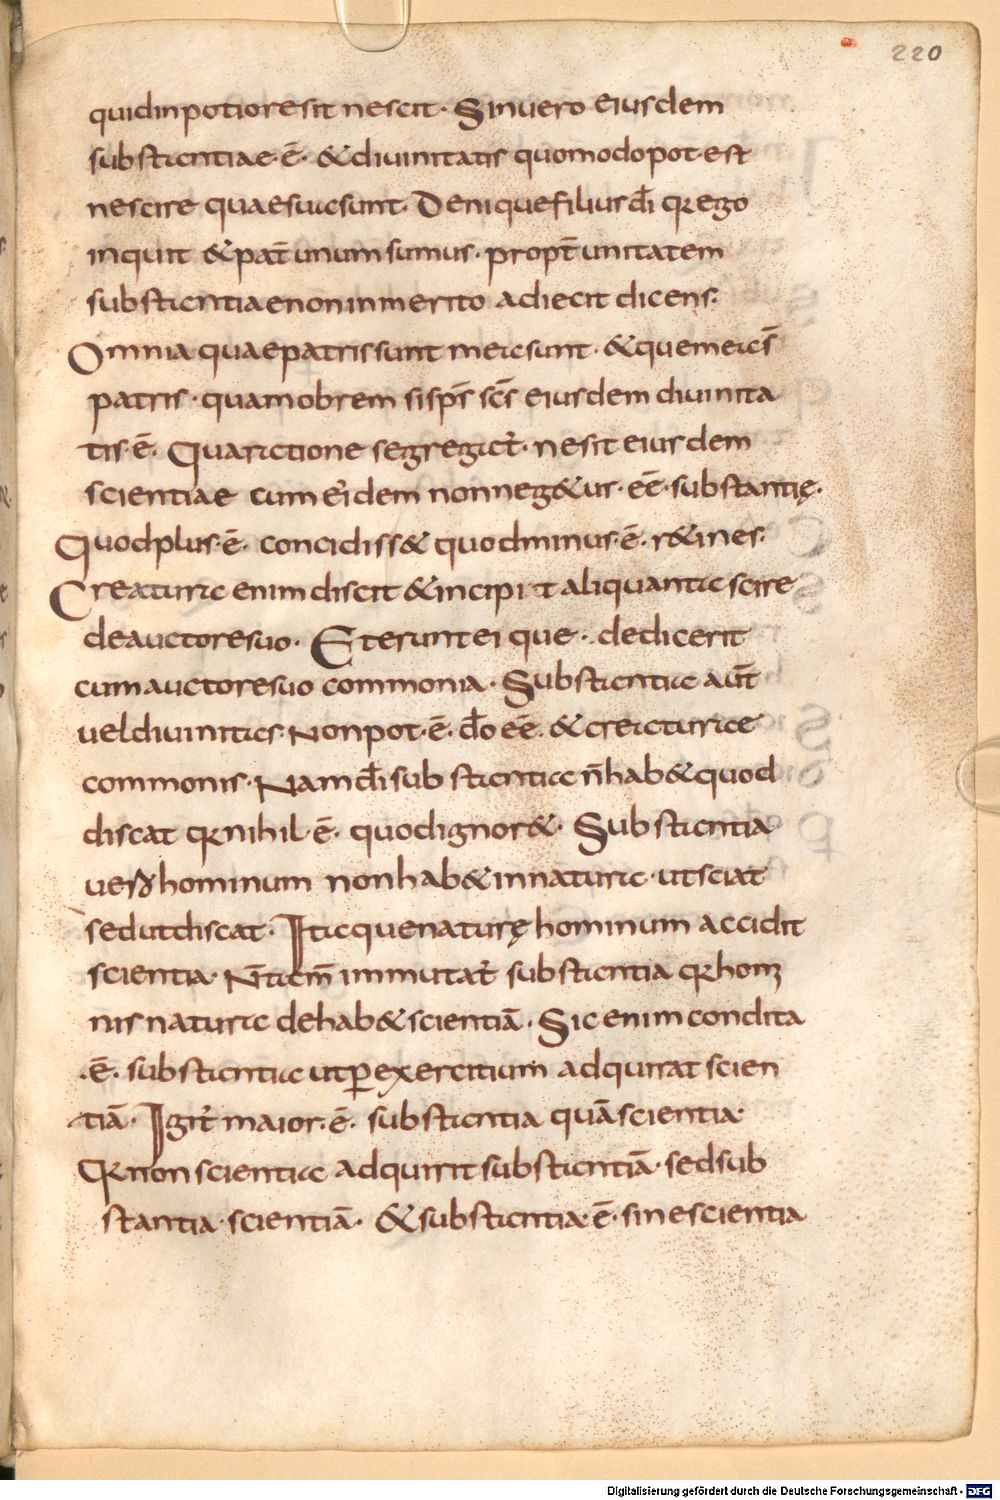 220
quid in potiore sit nescit · Sin uero eiusdem
substantiae · ē · & diuinitatis quomodo potest
nescire quae sua sunt · Denique filius dī qr ego
inquit & pat̄ unum sumus · propt̄ unitatem
substantiae non inmerito adiecit dicens ·
Omnia quae patris sunt mea sunt · & que mea s̄
patris · quamobrem si sp̄s sc̄s eiusdem diuinita
tis · ē · Qua ratione segregat̄ · ne sit eiusdem
scientiae cum ei'dem non neg&ur · ee̅ · substantię ·
Quod plus · ē · concidiss& quod minus · ē · r&ines ·
Creatura enim discit & incipit aliquanta scire
de auctore suo · Et erunt ei que · dedicerit
cum auctore suo commonia · Substantia aut̄
uel diuinitas Non pot · ē · dō ee̅ · & creaturae
commonis · Nam dī substantia n̄ hab& quod
discat qr nihil · ē · quod ignor& · Substantia
uero hominum non hab& in natura · ut sciat
sed ut discat · Itaque naturę hominum accidit
scientia · N̄ tam̄ immutat̄ substantia qr homi
nis natura de hab& scientiā · Sic enim condita
· ē · substantia ut ꝑ exercitium adquirat scien
tiā · Igit̄ maior · ē · substantia quā scientia ·
Qr non scientia adquirit substantiā · sed sub
stantia · scientiā · & substantia · ē · sine scientia
Digitalisierung gefördert durch die Deutsche Forschungsgemeinschaft - DFG